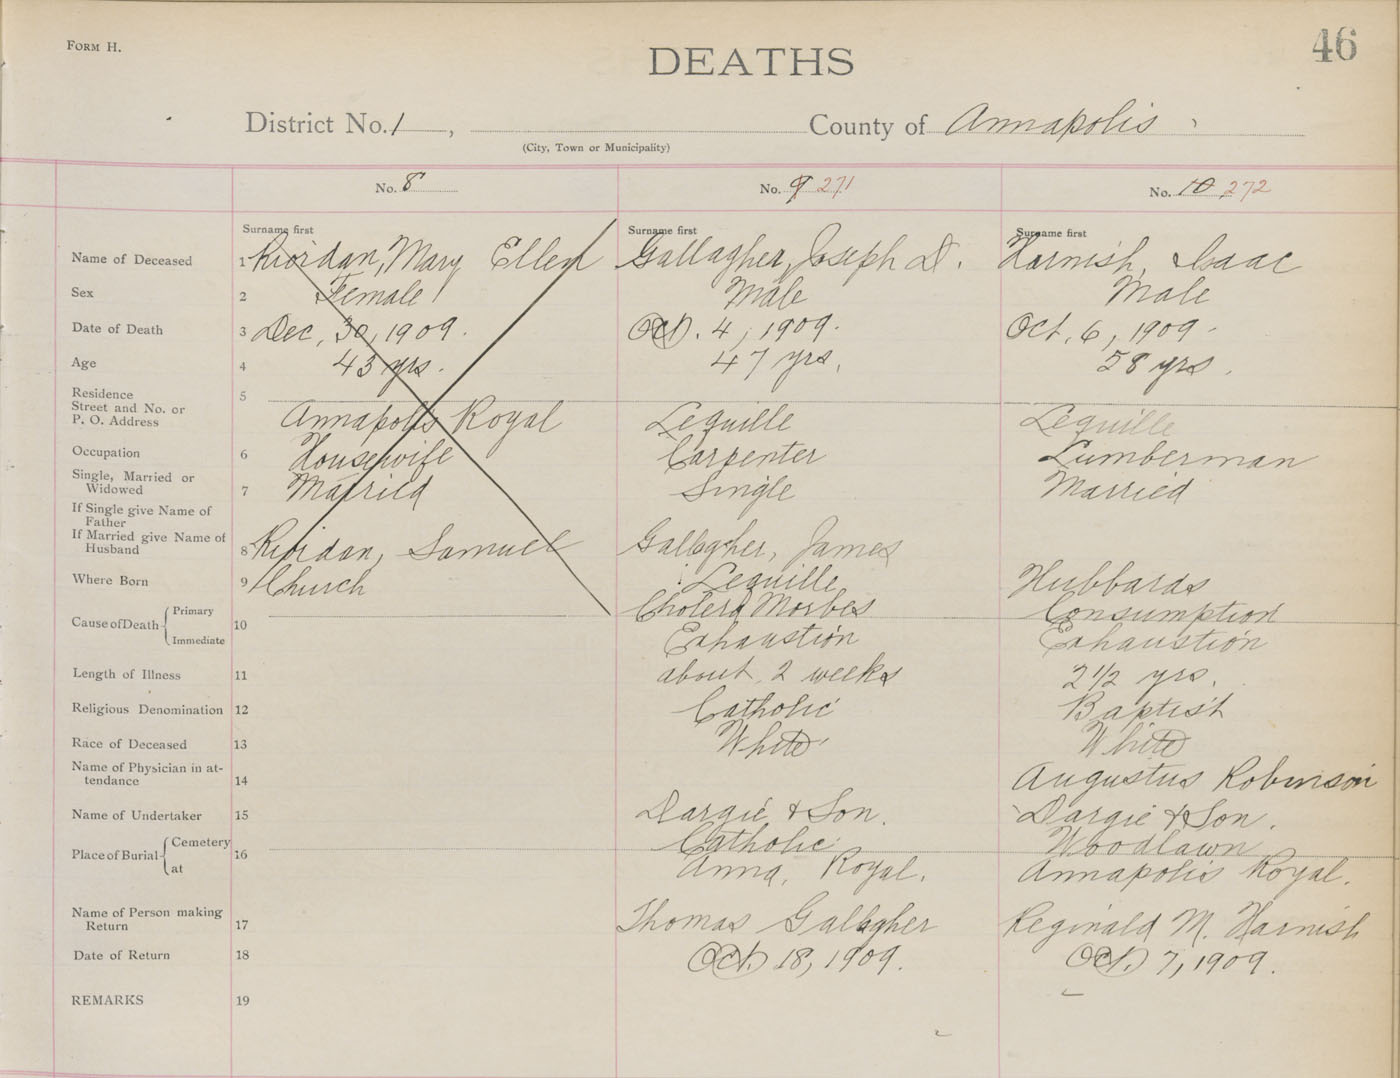 FORM H.
46
DEATHS
District No. 1, County of Annapolis
(City, Town or Municipality)
No. 8
No. 9 271
No. 10 272
Surname first
Surname first
Surname first
Name of Deceased 1 Riordan, Mary Ellen Gallagher, Joseph D. Harnish, Isaac
Sex 2 Female Male Male
Date of Death 3 Dec, 30, 1909. Oct. 4, 1909. Oct, 6, 1909.
Age 4 43 yrs. 47 yrs. 58 yrs.
Residence 5
Street and No. or
P. O. Address Annapolis Royal Lequille Lequille
Occupation 6 Housewife Carpenter Lumberman
Single, Married or
Widowed 7 Married Single Married
If Single give Name of
Father
If Married give Name of
Husband 8 Riordan, Samuel Gallagher, James
Where Born 9 Church Lequille Hubbards
Cause of Death Primary 10 Cholera Morbus Consumption
Immediate Exhaustion Exhaustion
Length of Illness 11 about 2 weeks 2 1/2 yrs.
Religious Denomination 12 Catholic Baptist
Race of Deceased 13 White White
Name of Physician in at-
tendance 14 Augustus Robinson
Name of Undertaker 15 Dargie & Son. Dargie & Son.
Place of Burial Cemetery 16 Catholic Woodlawn
at Anna. Royal. Annapolis Royal.
Name of Person making
Return 17 Thomas Gallagher Reginald M. Harnish
Date of Return 18 Oct. 18, 1909. Oct. 7, 1909.
REMARKS 19